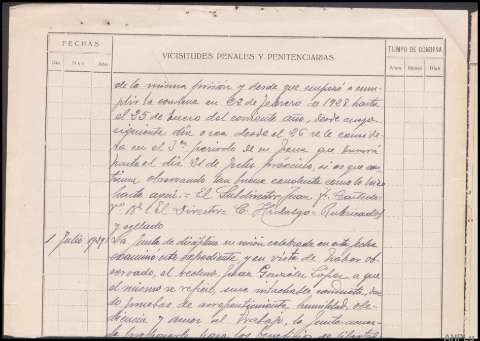 FECHAS
VICISITUDES PENALES Y PENITENCIARIAS
TIEMPO DE CONDENA
Día Mes Año
Años Meses Días
de la misma prisión y desde que empezó a cum-
plir la condena en 22 de febrero de 1928 hasta
el 25 de Enero del corriente año, desde cuyo
siguiente día o sea desde el 26 se le consi de-
ra en el 3er periodo de su pena que durará
hasta el día 21 de Julio próximo, si es que con-
tinua observando tan buena conducta como lo hizo
hasta aquí = El Subdirector Juan J.
Vº Bº El Director C. Hidalgo = Rubricados
y sellado
1 Julio 1929 La Junta de disciplina en sesión celebrada en esta fecha
examinó este expediente y en vista de haber ob-
servado, el recluso Juan González López a que
el mismo se refiere, una intachable conducta, dan-
do pruebas de arrepentimiento, humildad, obe-
diencia y amor al trabajo, la Junta acuer-
da para los beneficios de libertad